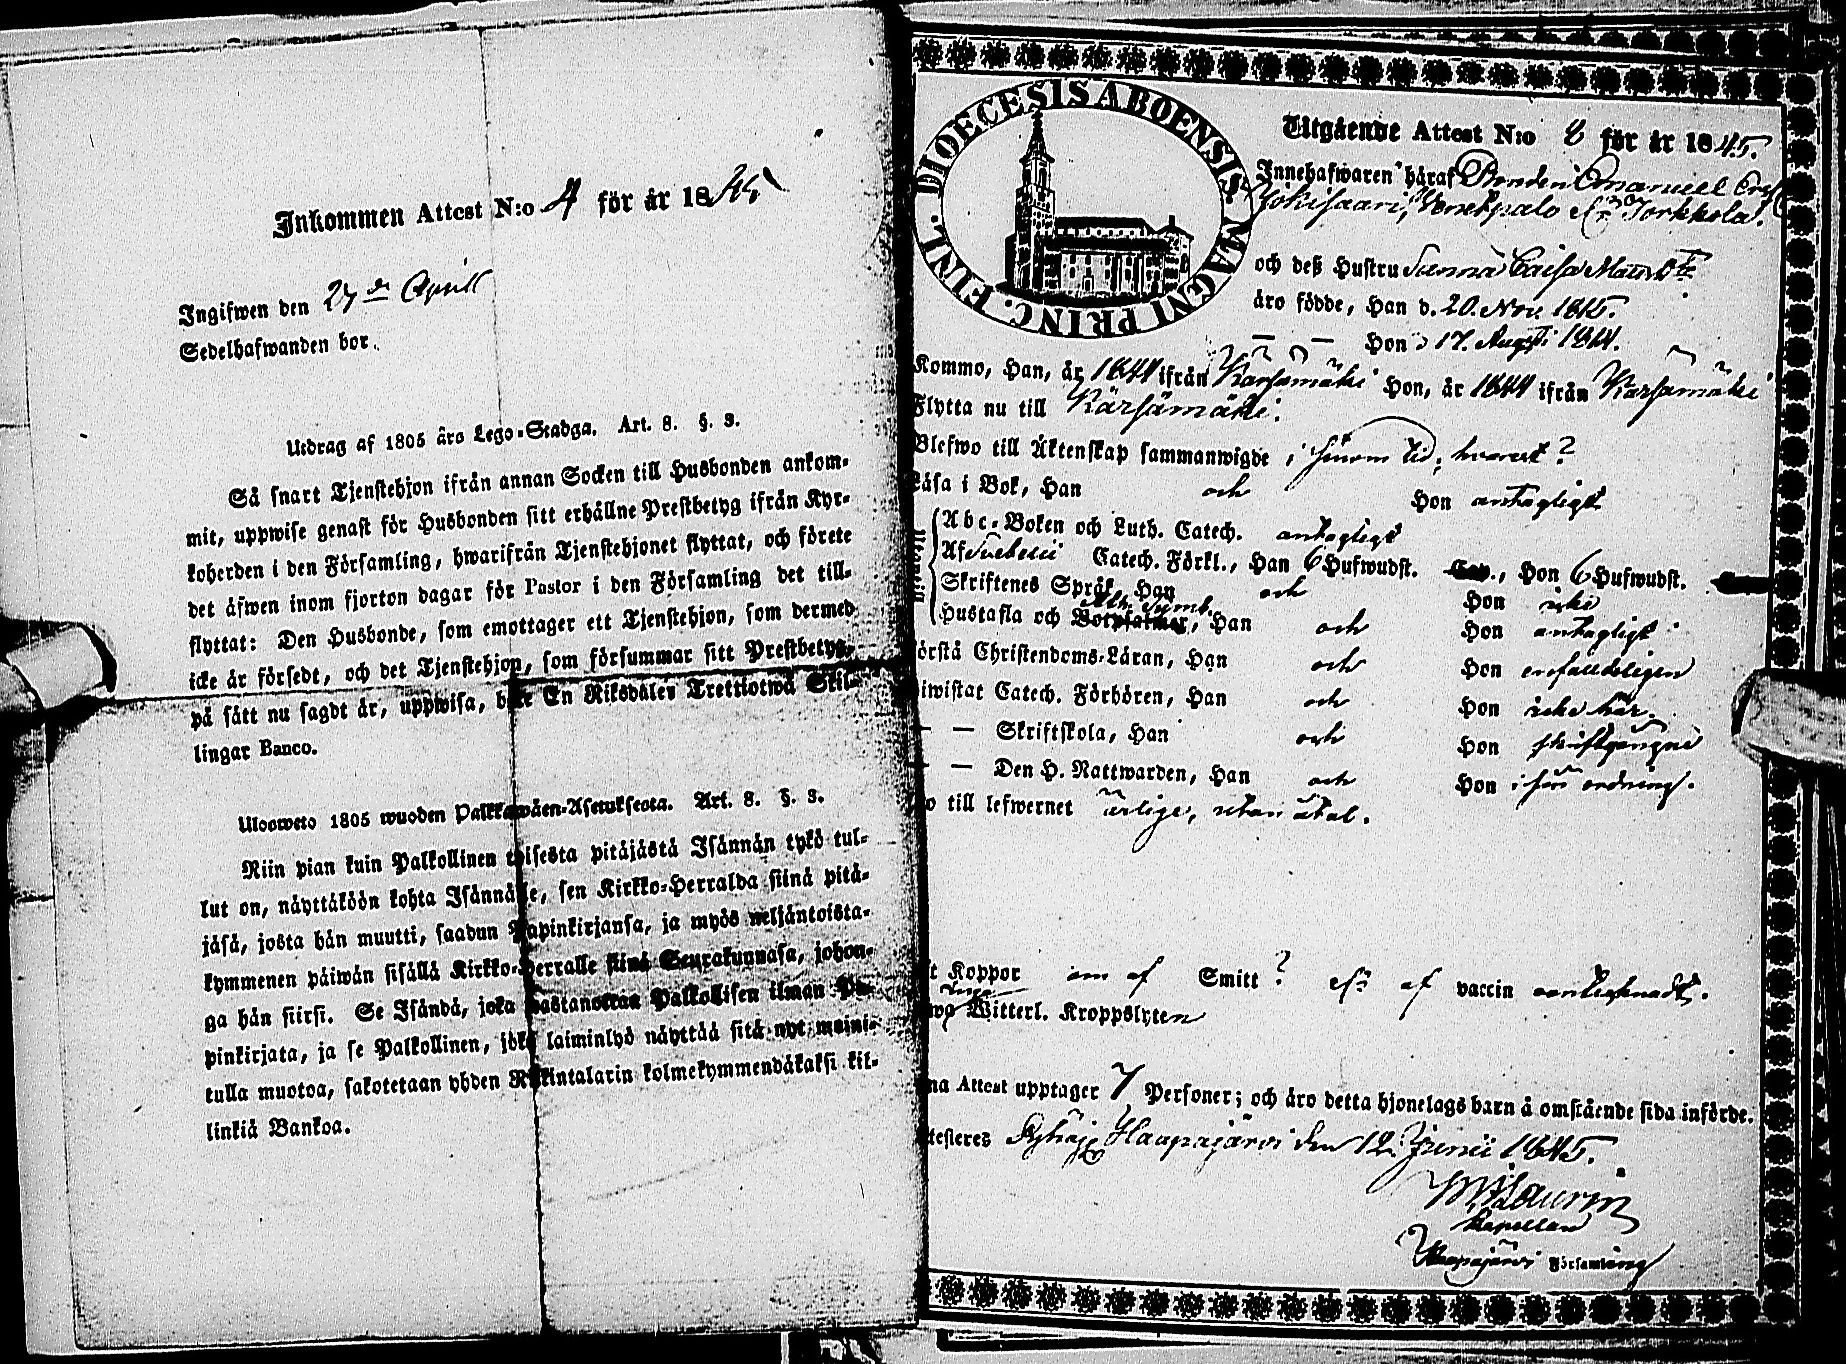 Inkommen Attest N:o 4 för år 1845
Ingifwen den 27de April
Sedelhafwanden bor.
Utdrag af 1805 års Lego-Stadga. Art. 8. §. 3.
Så snart Tjenstehjon ifrån annan Socken till Husbonden ankom-
mit, uppwise genast för Husbonden sitt erhållne Prestbetyg ifrån Kyr-
koherden i den Församling, hwarifrån Tjenstehjonet flyttat, och förete
det äfwen inom fjorton dagar för Pastor i den Församling det till-
flyttat: Den Husbonde, som emottager ett Tjenstehjon, som dermed
icke är försedt, och det Tjenstehjon, som försummar sitt Prestbetyg,
på sätt nu sagdt är, uppwisa, böte En Riksdaler Trettiotwå Skil-
lingar Banco.
Uloswето 1805 wuoden Palkkawäen-Asetuksesta. Art. 8. §. 3.
Niin pian kuin Palkollinen toisesta pitäjästä Isännän tykö tul-
lut on, näyttäköön kohta Isännälle, sen Kirkko-Herralda siinä pitä-
jäsä, josta hän muutti, saadun Papinkirjansa, ja myös neljäntoista-
kymmenen päiwän sisällä Kirkko-Herralle siinä Seurakunnasa, johon-
ga hän siirsi. Se Isändä, joka wastanottaa Palkollisen ilman Pa-
pinkirjata, ja se Palkollinen, joka laiminlyö näyttää sitä nyt maini-
tulla muotoa, sakotetaan yhden Riikintalarin kolmekymmendäkaksi kil-
lingiä Bankoa.
DIOECESIS ABOENSIS. MAGNI PRINC. FINL.
Utgående Attest N:o 8 för år 1845.
Innehafwaren häraf Bonden Emanuel
Jokisaari, Venetpalo
och deß Hustru Sanna Caisa Mattsdr
äro födde, Han d. 20. Nov. 1815.
— — Hon d 17. Augusti 1814.
Kommo, Han, år 1844 ifrån Kärsämäki Hon, år 1844 ifrån Kärsämäki
Flytta nu till Kärsämäki.
Blefwo till Äktenskap sammanwigde i sinom tid, hvarest?
Läsa i Bok, Han och Hon antagligt
Utantill
Abc-Boken och Luth. Catech. antagligt
Af Svebelii Catech. Förkl., Han 6 Hufwudst. Cap., Hon 6 Hufwudst.
Skriftenes Språk, Han och Hon icke
Ath. Symb.
Hustafla och Botpsalmer, Han och Hon antagligt
örstå Christendoms-Läran, Han och Hon enfalldeligen
iwistat Catech. Förhören, Han och Hon icke här.
— — Skriftskola, Han och Hon skriftgångne
— — Den H. Nattwarden, Han och Hon i sin ordning.
o till lefwernet ärlige, utan åtal.
t Koppor om af Smitt? af vaccin oantecknadt.
Witterl. Kroppslyten
na Attest upptager 7 Personer; och äro detta hjonelags barn å omstående sida införde.
testeres Haapajärvi den 12. Junii 1845.
Laurin
Kapellan
Haapajärvi Församling